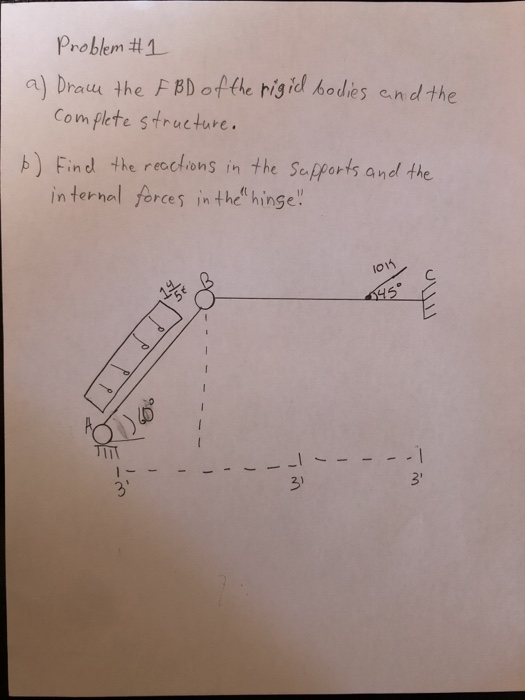 Problem #1
a) Draw the FBD of the rigid bodies and the
Complete structure.
b) Find the reactions in the Supports and the
internal forces in the "hinge".
10k
C
45°
B
A
60°
3'
3'
3'